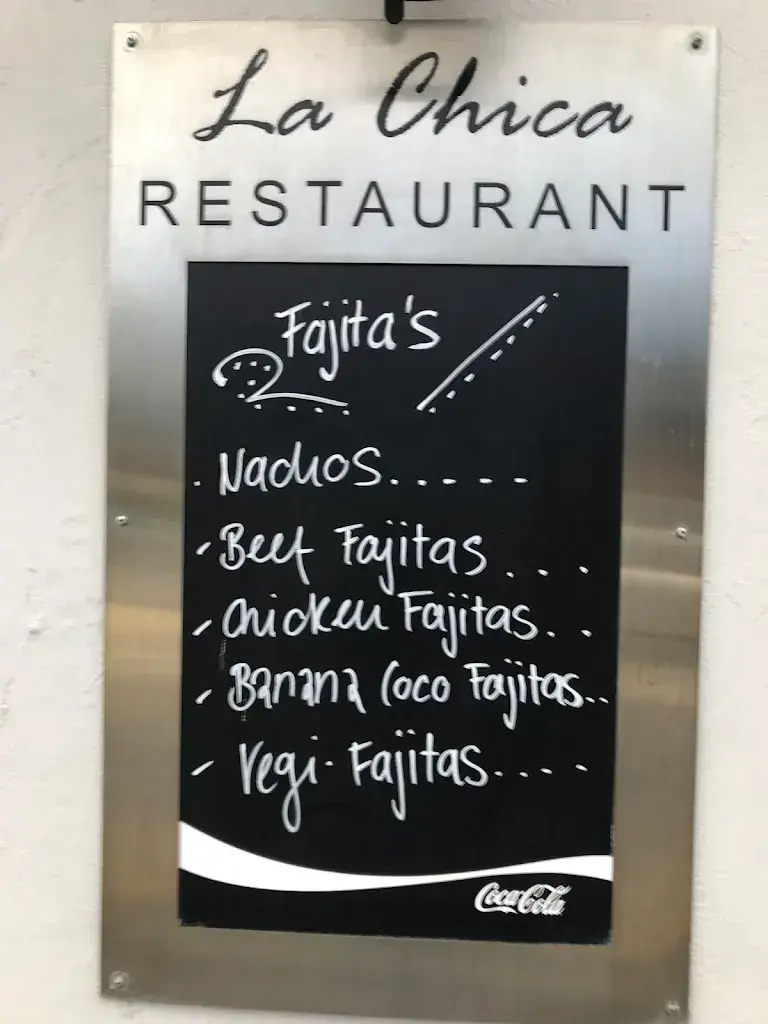 La Chica
RESTAURANT
Fajita's
. Nachos.....
- Beef Fajitas...
- Chicken Fajitas..
- Banana Coco Fajitas..
- Vegi. Fajitas....
Coca-Cola